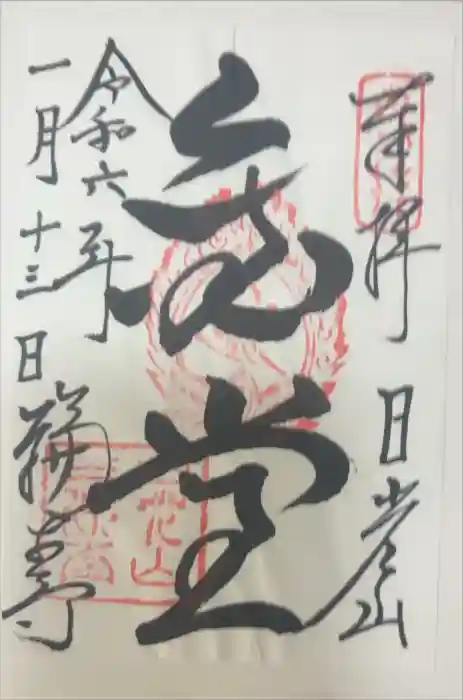 奉拝 日光山
堂
令和六年
一月十三日 輪王寺